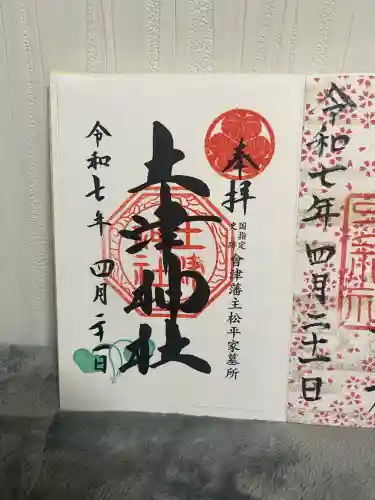 奉拝
国指定
史跡
會津藩主松平家墓所
土津神社
令和七年 四月二十一日
令和七年 四月二十一日